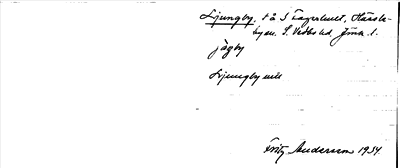 Ljungby. På S Fagerhult, Hässle-
byn. S. Vedbo hd, Jönk. l.
jägby
Ljungby mtl
Fritz Andersson 1934.